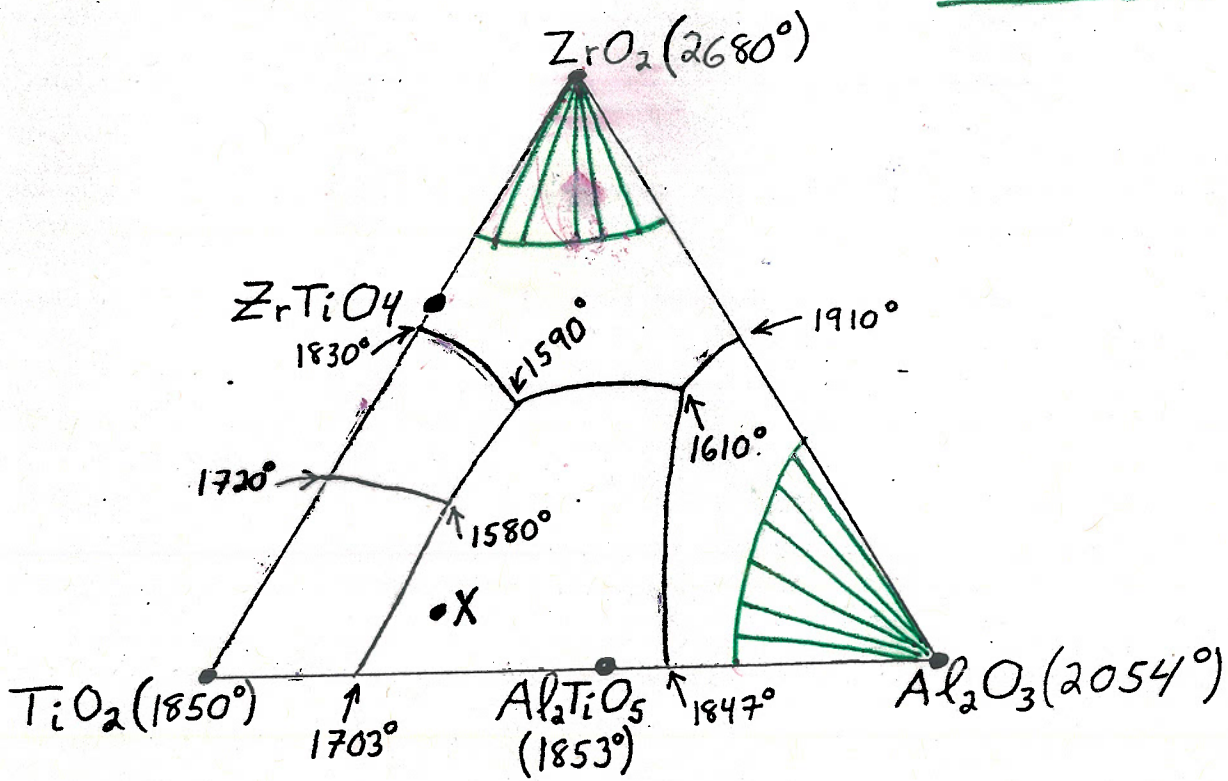 ZrO₂(2680°)
ZrTiO4
1830°
1590°
1910°
1610°
1720°
1580°
X
TiO₂(1850°)
1703°
Al₂TiO₅
(1853°)
1847°
Al₂O₃(2054°)